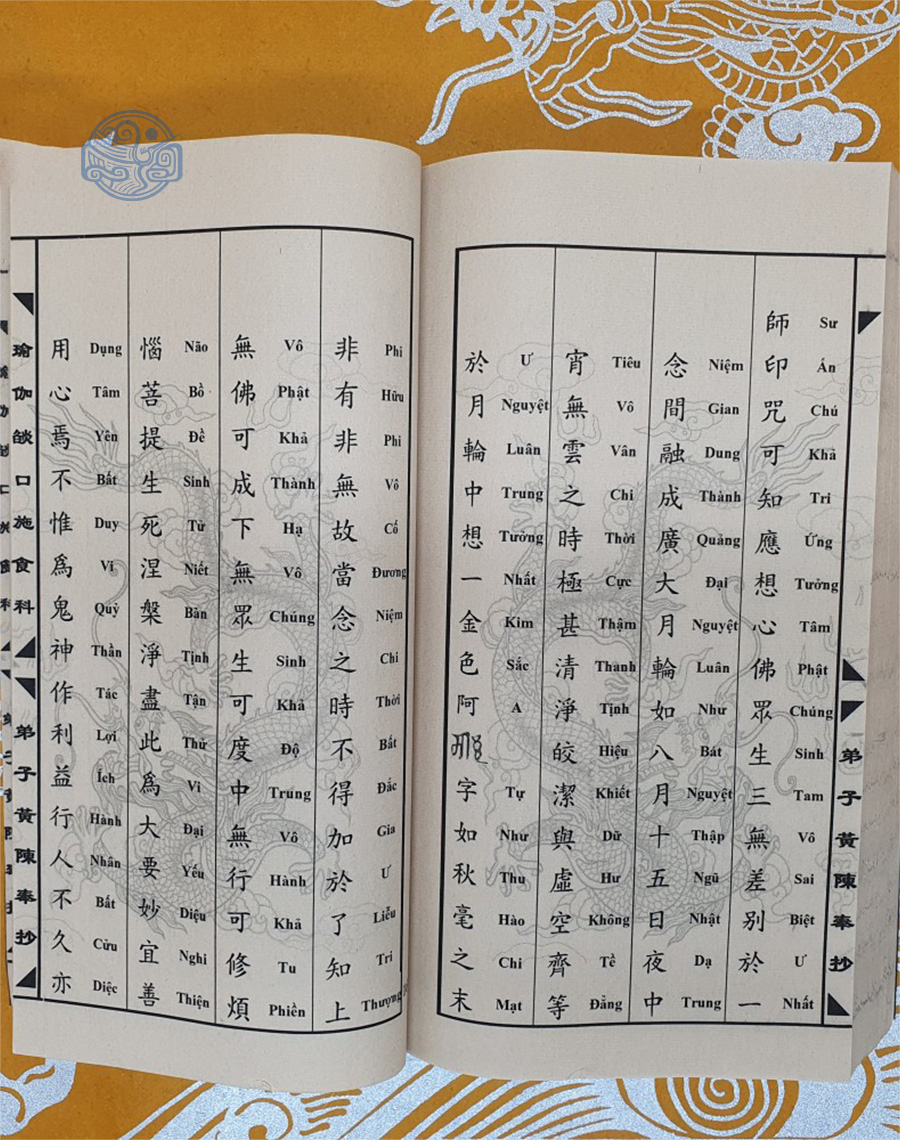 弟子黃陳奉抄
師印咒可知應想心佛眾生三無差別於一
Sư Án Chú Khả Tri Ứng Tưởng Tâm Phật Chúng Sinh Tam Vô Sai Biệt Ư Nhất
念間融成廣大月輪如八月十五日夜中
Niệm Gian Dung Thành Quảng Đại Nguyệt Luân Như Bát Nguyệt Thập Ngũ Nhật Dạ Trung
宵無雲之時極甚清淨皎潔與虛空齊等
Tiêu Vô Vân Chi Thời Cực Thậm Thanh Tịnh Hiệu Khiết Dữ Hư Không Tề Đẳng
於月輪中想一金色阿字如秋毫之末
Ư Nguyệt Luân Trung Tưởng Nhất Kim Sắc A Tự Như Thu Hào Chi Mạt
非有非無故當念之時不得加於了知上
Phi Hữu Phi Vô Cố Đương Niệm Chi Thời Bất Đắc Gia Ư Liễu Tri Thượng
無佛可成下無眾生可度中無行可修煩
Vô Phật Khả Thành Hạ Vô Chúng Sinh Khả Độ Trung Vô Hành Khả Tu Phiền
惱菩提生死涅槃淨盡此爲大要妙宜善
Não Bồ Đề Sinh Tử Niết Bàn Tịnh Tận Thử Vi Đại Yếu Diệu Nghi Thiện
用心焉不惟爲鬼神作利益行人不久亦
Dụng Tâm Yên Bất Duy Vị Quỷ Thần Tác Lợi Ích Hành Nhân Bất Cửu Diệc
瑜伽燄口施食科
弟子黃陳奉抄